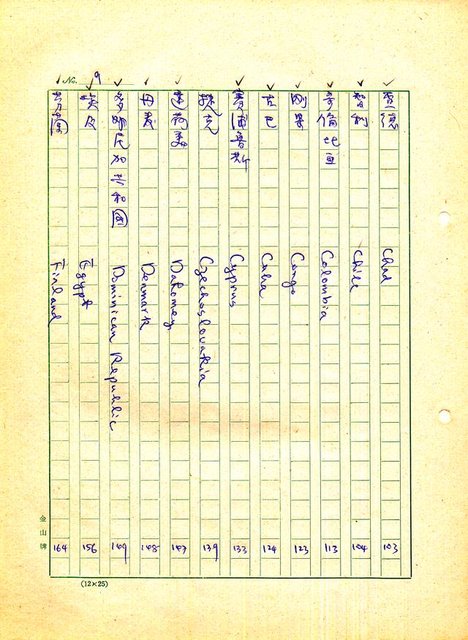 No. 9
查德 Chad 103
智利 Chile 104
哥倫比亚 Colombia 113
剛果 Congo 123
古巴 Cuba 124
賽浦魯斯 Cyprus 133
捷克 Czechoslovakia 139
達荷美 Dahomey 147
丹麦 Denmark 148
多明尼加共和國 Dominican Republic 149
埃及 Egypt 156
芬蘭 Finland 164
金山牌
(12×25)